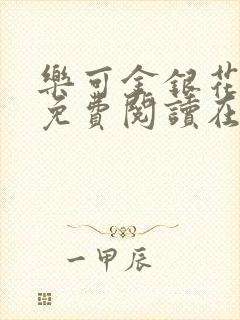 樂可金銀花
免費閱讀在
一甲辰